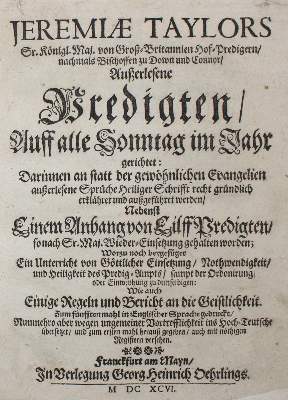 JEREMIÆ TAYLORS
Sr. Königl. Maj. von Groß-Britannien Hof-Predigern/
nachmals Bischoffen zu Down und Connor/
Außerlesene
Predigten/
Auff alle Sonntag im Jahr
gerichtet:
Darinnen an statt der gewöhnlichen Evangelien
außerlesene Sprüche Heiliger Schrifft recht gründlich
erklähret und außgeführet werden/
Nebenst
Einem Anhang von Eilff Predigten/
so nach Sr. Maj. Wieder-Einsetzung gehalten worden;
Worzu noch beygefüget
Ein Unterricht von Göttlicher Einsetzung/ Nothwendigkeit/
und Heiligkeit des Predig-Ampts/ sampt der Ordenirung/
oder Einweihung zu demselbigen:
Wie auch
Einige Regeln und Bericht an die Geistlichkeit.
Zum fünfften mahl in Englischer Sprache gedruckt/
Nunmehro aber wegen ungemeiner Vortrefflichkeit ins Hoch-Teutsche
übersetzet/ und zum ersten mahl herauß gegeben/ auch mit nöthigen
Registern versehen.
Franckfurt am Mayn/
In Verlegung Georg Heinrich Oehrlings.
M DC XCVI.